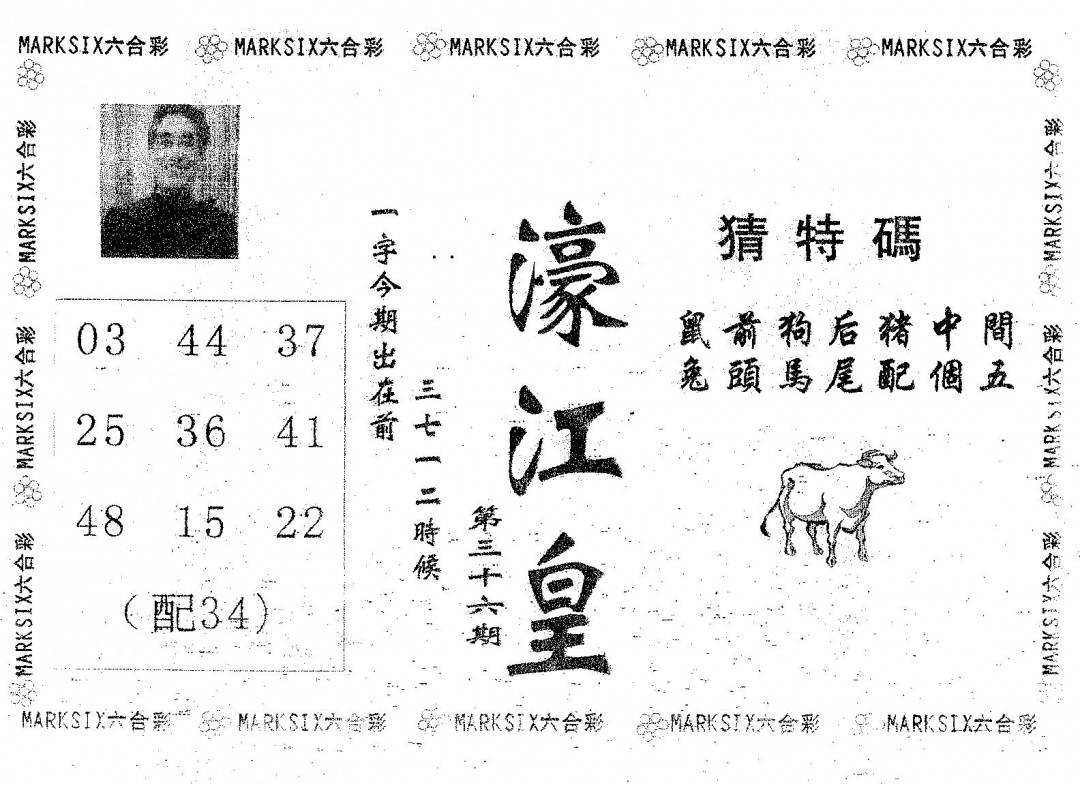 MARKSIX六合彩 MARKSIX六合彩 MARKSIX六合彩 MARKSIX六合彩 MARKSIX六合彩
MARKSIX六合彩
MARKSIX六合彩
MARKSIX六合彩
03 44 37
25 36 41
48 15 22
(配34)
一字今期出在前
三七一二時候
第三十六期
濠江皇
猜特碼
鼠前狗后豬中間
兔頭馬尾配個五
MARKSIX六合彩
MARKSIX六合彩
MARKSIX六合彩
MARKSIX六合彩 MARKSIX六合彩 MARKSIX六合彩 MARKSIX六合彩 MARKSIX六合彩